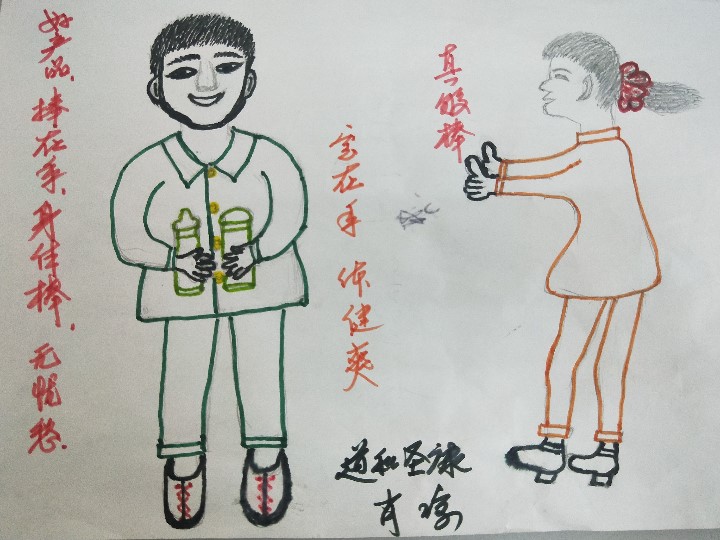 好产品,捧在手,身体棒,无忧愁.
宝在手 体健爽
真的棒
道和圣康
肖